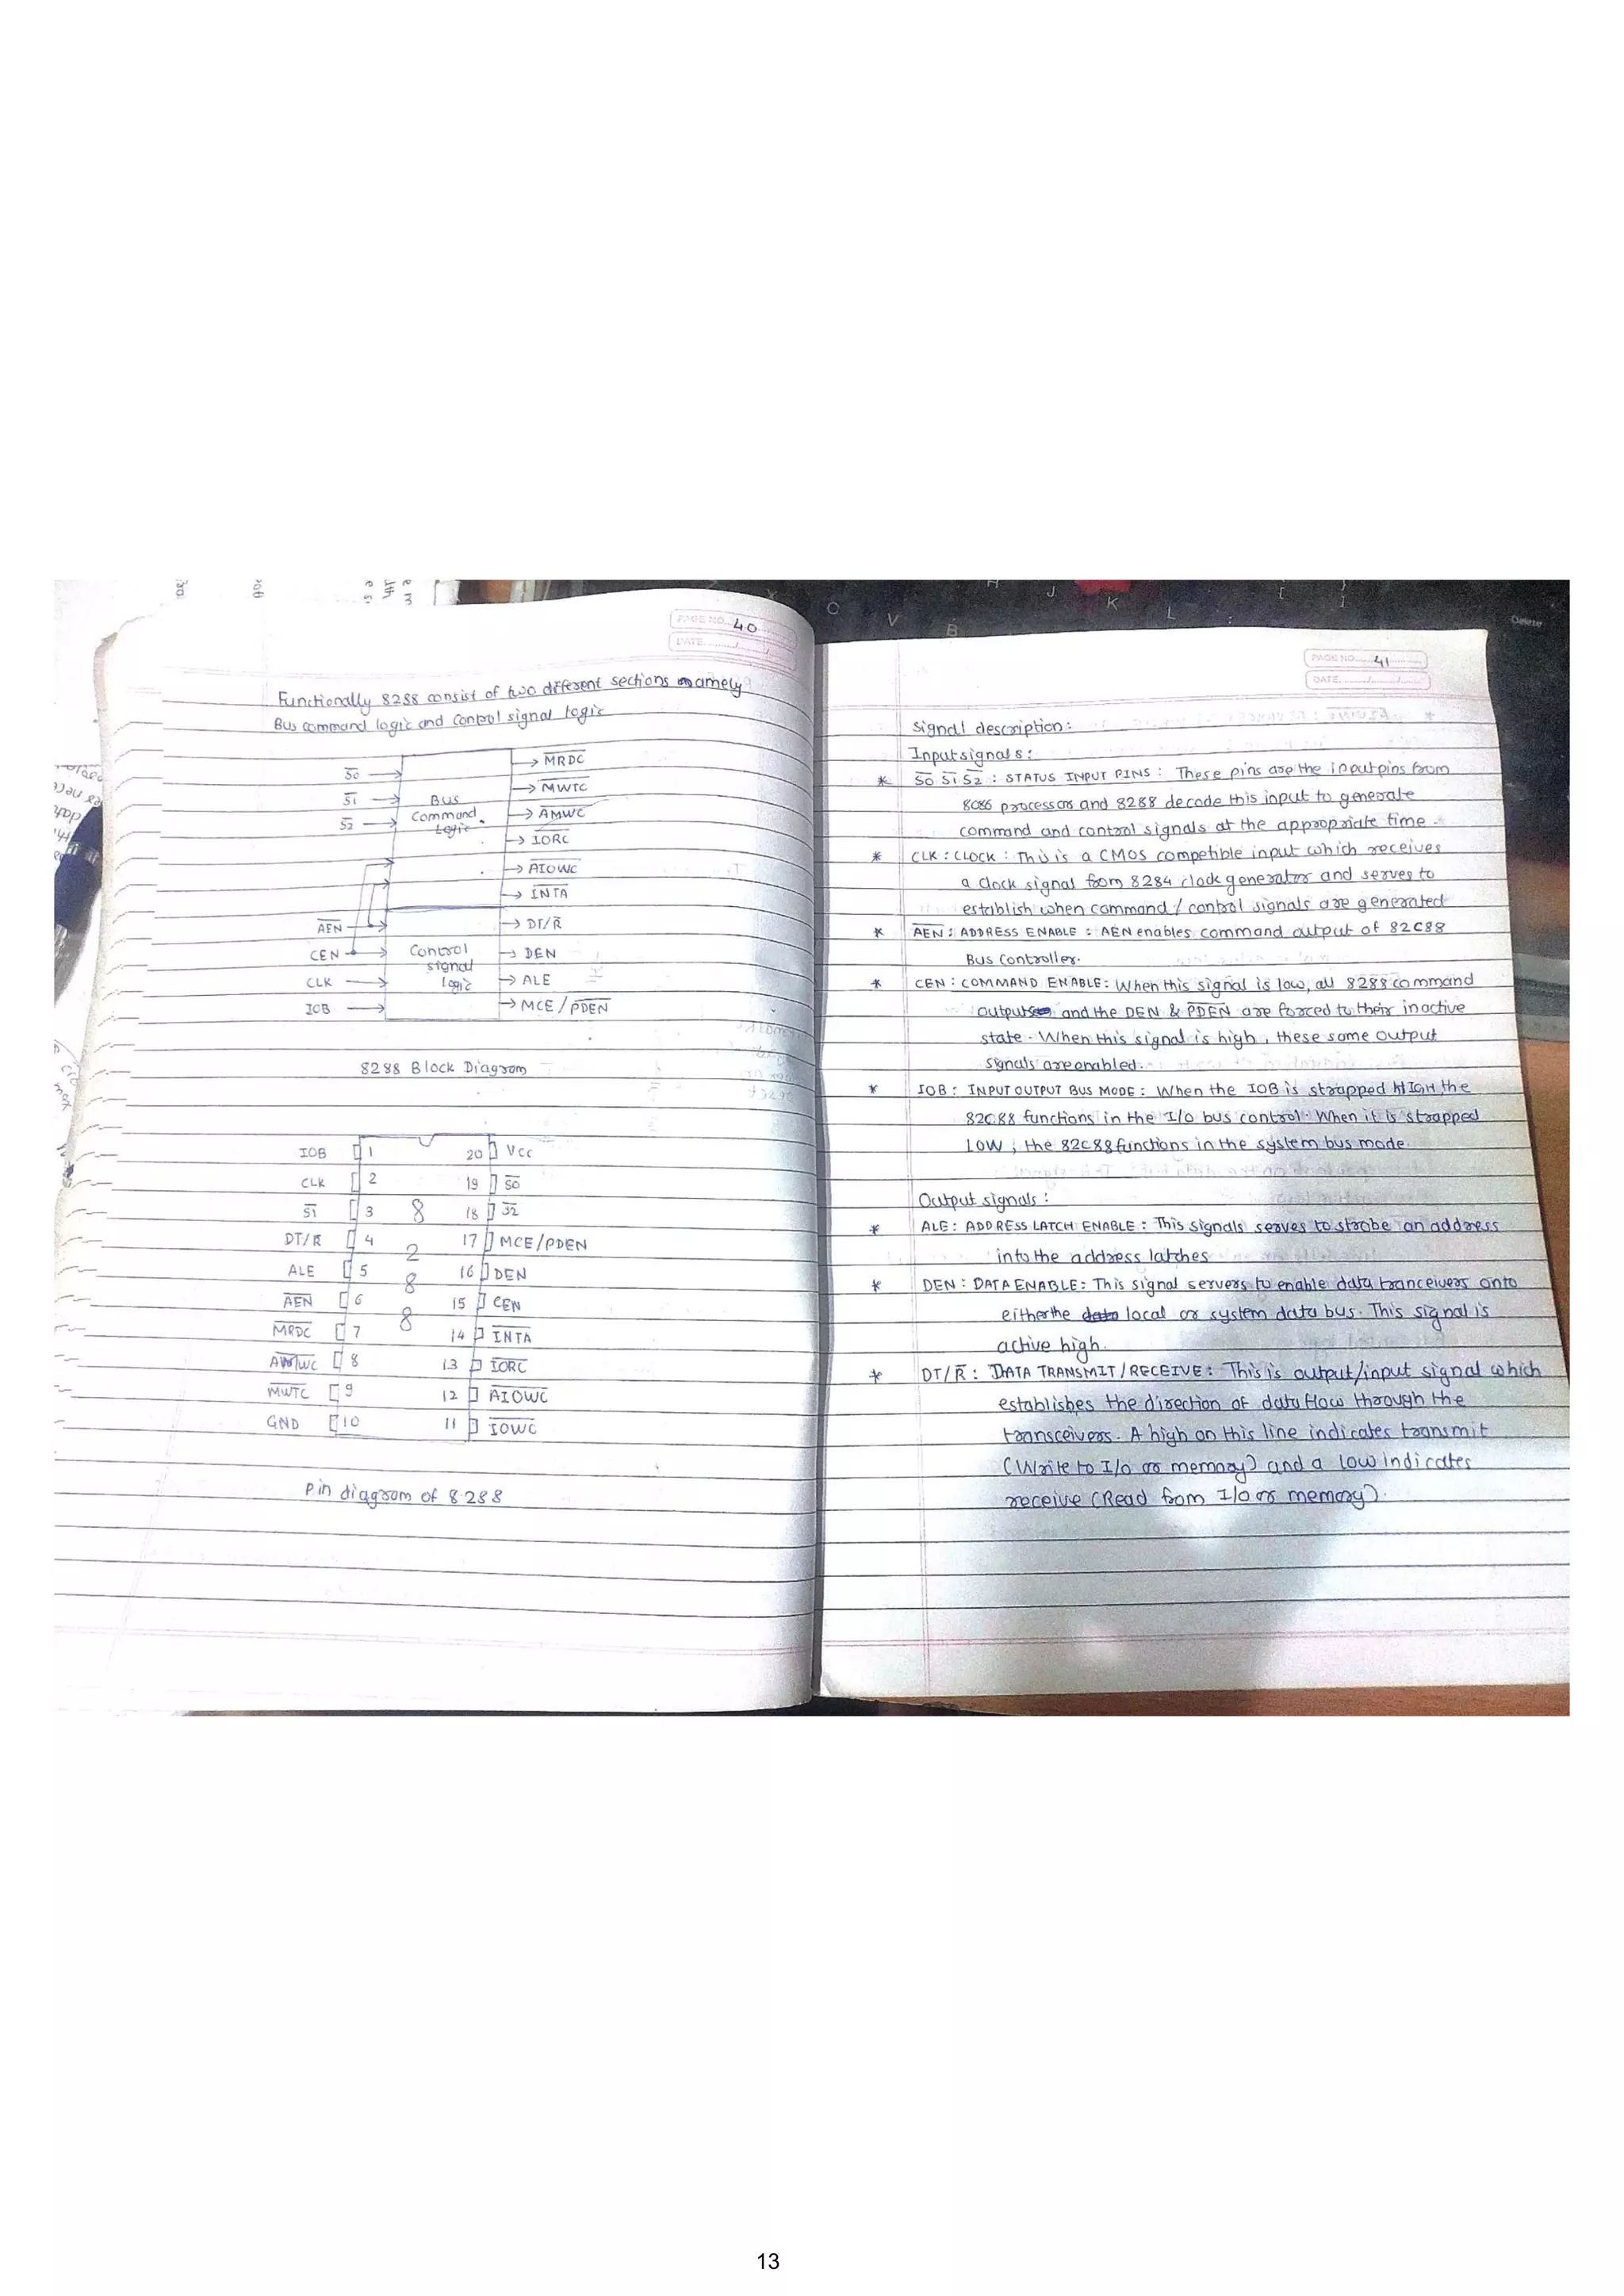 PAGE NO. 40
DATE
Functionally 8288 consist of two different sections namely
Bus command logic and Control signal logic
S̅0̅
S̅1̅
S̅2̅
Bus
Command
Logic
M̅R̅D̅C̅
M̅W̅T̅C̅
A̅M̅W̅C̅
I̅O̅R̅C̅
A̅I̅O̅W̅C̅
I̅N̅T̅A̅
A̅E̅N̅
CEN
CLK
IOB
Control
signal
logic
DT/R̅
DEN
ALE
MCE/P̅D̅E̅N̅
8288 Block Diagram
IOB 1 20 Vcc
CLK 2 19 S̅0̅
S̅1̅ 3 8 18 S̅2̅
DT/R̅ 4 2 17 MCE/PDEN
ALE 5 8 16 DEN
A̅E̅N̅ 6 8 15 CEN
M̅R̅D̅C̅ 7 14 I̅N̅T̅A̅
A̅M̅W̅C̅ 8 13 I̅O̅R̅C̅
M̅W̅T̅C̅ 9 12 A̅I̅O̅W̅C̅
GND 10 11 I̅O̅W̅C̅
Pin diagram of 8288
PAGE NO. 41
DATE
Signal description:
Input signals:
* S̅0̅ S̅1̅ S̅2̅ : STATUS INPUT PINS : These pins are the input pins from
8086 processors and 8288 decode this input to generate
command and control signals at the appropriate time.
* CLK : CLOCK : This is a CMOS competible input which receives
a clock signal from 8284 clock generator and serves to
establish when command / control signals are generated
* A̅E̅N̅ : ADDRESS ENABLE : AEN enables command output of 82C88
Bus Controller.
* CEN : COMMAND ENABLE : When this signal is low, all 8288 command
outputs and the DEN & P̅D̅E̅N̅ are forced to their inactive
state. When this signal is high, these same output
signals are enabled.
* IOB : INPUT OUTPUT BUS MODE : When the IOB is strapped HIGH, the
82C88 functions in the I/O bus control. When it is strapped
LOW, the 82C88 functions in the system bus mode.
Output signals :
* ALE : ADDRESS LATCH ENABLE : This signals serves to strobe an address
into the address latches
* DEN : DATA ENABLE : This signal servers to enable data tranceivers onto
either the local or system data bus. This signal is
active high.
* DT/R̅ : DATA TRANSMIT / RECEIVE : This is output/input signal which
establishes the direction of data flow through the
transceivers. A high on this line indicates transmit
(Write to I/O or memory) and a low indicates
receive (Read from I/O or memory).
13